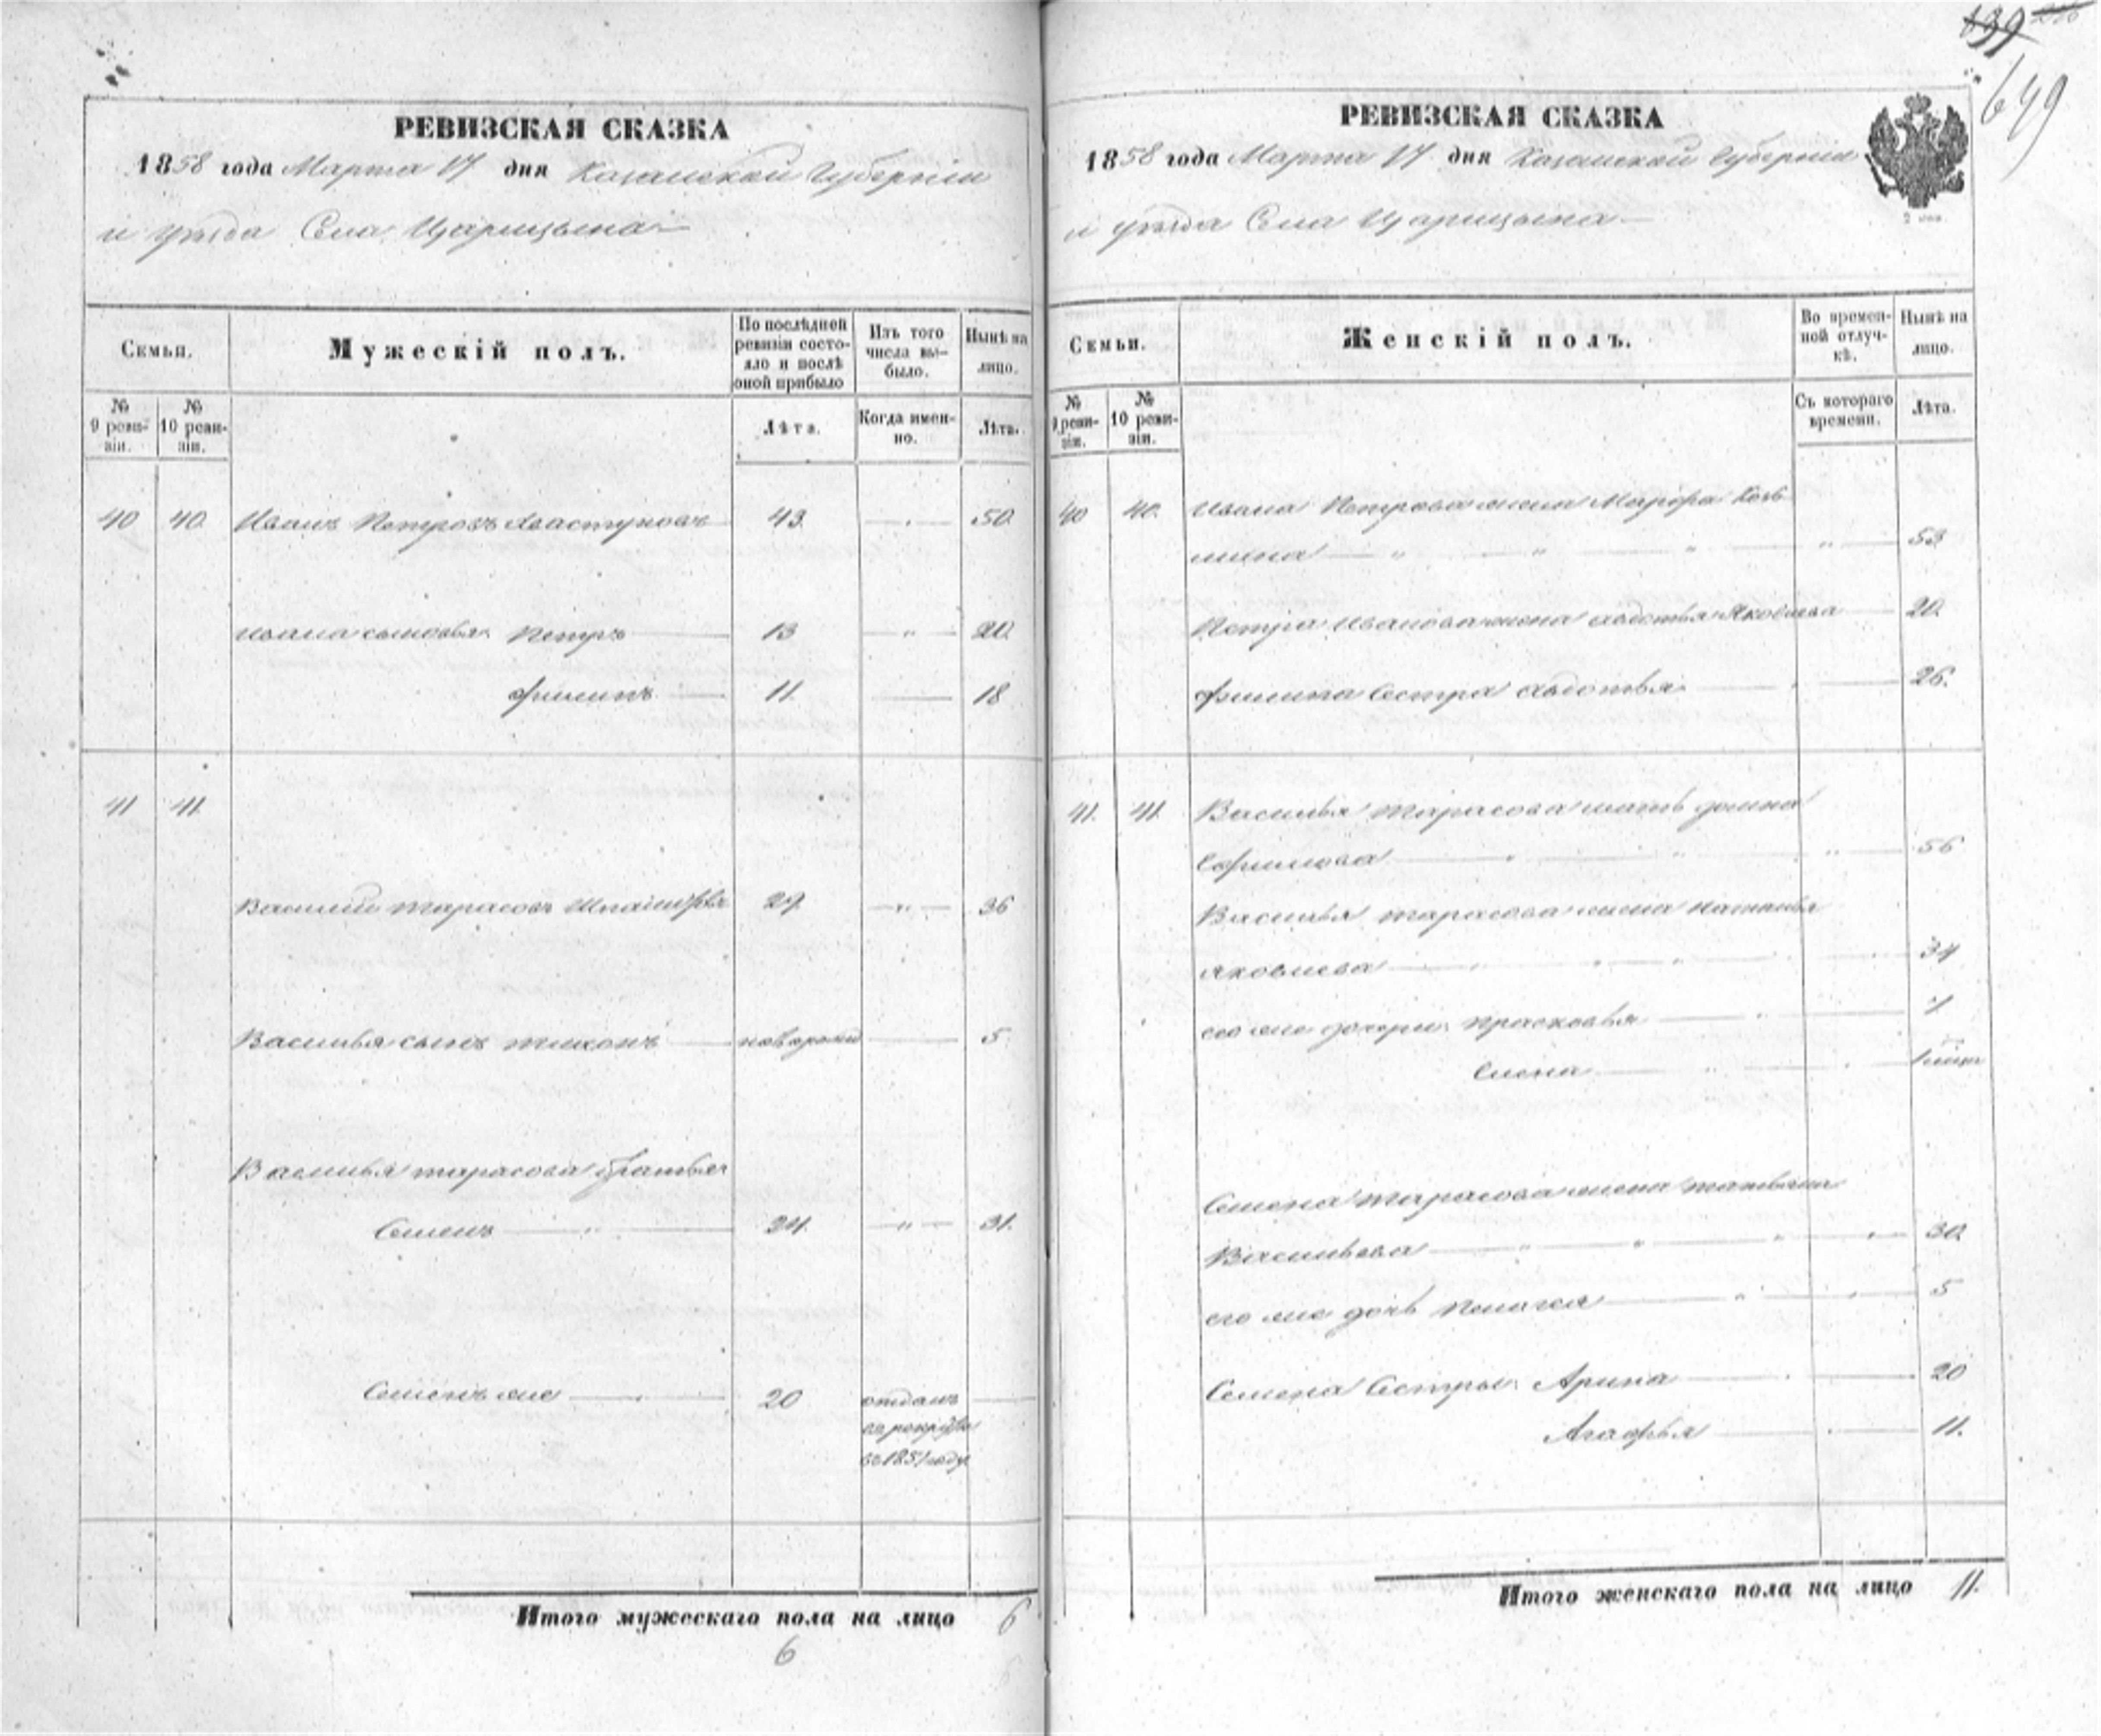 РЕВИЗСКАЯ СКАЗКА
1858 года Марта 17 дня Казанской Губерніи
и уѣзда Села Царицына
Семьи.
Мужескій полъ.
По послѣдней ревизіи состояло и послѣ оной прибыло
Изъ того числа выбыло.
Нынѣ на лицо.
№ 9 ревизіи.
№ 10 ревизіи.
Лѣта.
Когда именно.
Лѣта.
40 40. Иванъ Петровъ 43. 50.
Ивана сыновья: Петръ 13 " 20.
Филипъ 11. 18
41 41.
Василий Тарасовъ 29. " 36
Василья сынъ Тихонъ новорожд 5.
Василья Тарасова братья
Семенъ " 24. " 31.
Семенъ же 20 отданъ
въ рекруты
въ 1851 году
Итого мужескаго пола на лицо 6
6
139
649
РЕВИЗСКАЯ СКАЗКА
1858 года Марта 17 дня Казанской Губерніи
и уѣзда Села Царицына
Семьи.
Женскій полъ.
Во временной отлучкѣ.
Нынѣ на лицо.
№ 9 ревизіи.
№ 10 ревизіи.
Съ котораго времени.
Лѣта.
40 40. Ивана Петрова жена Марфа Козь
мина " " " " 53
Петра Иванова жена Авдотья Яковлева 20.
Филипа Сестра Авдотья 26.
41. 41. Василья Тарасова мать Домна
Ефимова " " " 56
Василья Тарасова жена Наталья
Яковлева 34
его же дочери: Прасковья 7
Елена
Семена Тарасова жена Татьяна
Васильева " " " 30.
его же дочь Пелагея " 5
Семена Сестры: Арина 20
Агафья 11.
Итого женскаго пола на лицо 11.